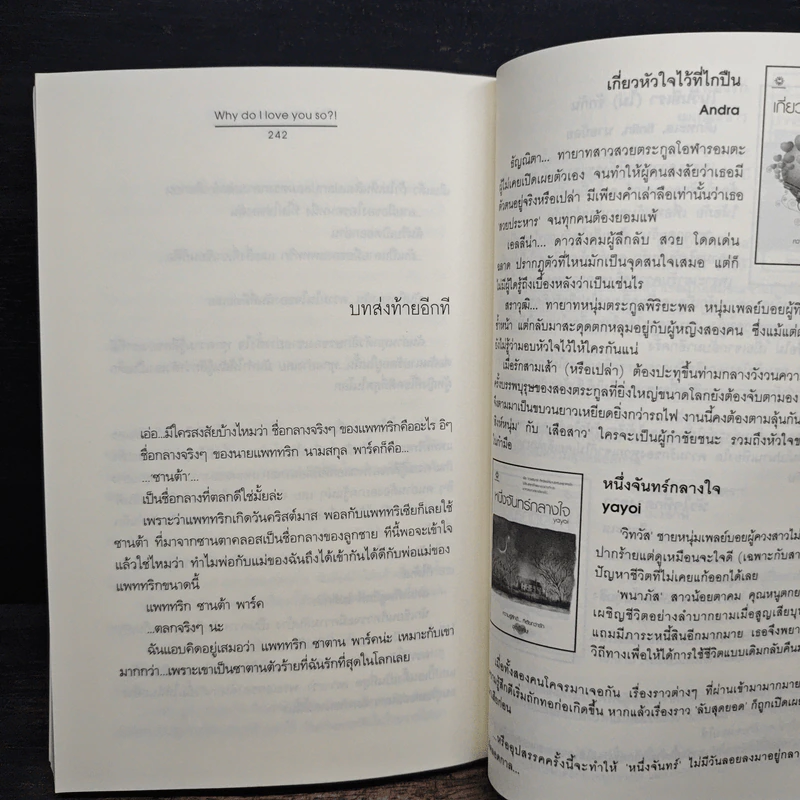 Why do I love you so?!
242
บทส่งท้ายอีกที
เอ่อ...มีใครสงสัยบ้างไหมว่า ชื่อกลางจริงๆ ของแพททริกคืออะไร อิๆ
ชื่อกลางจริงๆ ของนายแพททริก นามสกุล พาร์คก็คือ...
...'ซานต้า'...
เป็นชื่อกลางที่ตลกดีใช่มั้ยล่ะ
เพราะว่าแพททริกเกิดวันคริสต์มาส พอลกับแพททริเซียก็เลยใช้
ซานต้า ที่มาจากซานตาคลอสเป็นชื่อกลางของลูกชาย ทีนี้พอจะเข้าใจ
แล้วใช่ไหมว่า ทำไมพ่อกับแม่ของฉันถึงได้เข้ากันได้ดีกับพ่อแม่ของ
แพททริกขนาดนี้
แพททริก ซานต้า พาร์ค
...ตลกจริงๆ นะ
ฉันแอบคิดอยู่เสมอว่า แพททริก ซาตาน พาร์คน่ะ เหมาะกับเขา
มากกว่า...เพราะเขาเป็นซาตานตัวร้ายที่ฉันรักที่สุดในโลกเลย
เกี่ยวหัวใจไว้ที่ไกปืน
Andra
ธัญณิตา... ทายาทสาวสวยตระกูลโอฬารอมตะ
ผู้ไม่เคยเปิดเผยตัวเอง จนทำให้ผู้คนสงสัยว่าเธอมี
ตัวตนอยู่จริงหรือเปล่า มีเพียงคำเล่าลือเท่านั้นว่าเธอ
'สวยประหาร' จนทุกคนต้องยอมแพ้
เอลลีน่า... ดาวสังคมผู้ลึกลับ สวย โดดเด่น
ฉลาด ปรากฏตัวที่ไหนมักเป็นจุดสนใจเสมอ แต่ก็
ไม่มีผู้ใดรู้ถึงเบื้องหลังว่าเป็นเช่นไร
สราวุฒิ... ทายาทหนุ่มตระกูลพิริยะพล หนุ่มเพลย์บอยผู้ที่
หน้า แต่กลับมาสะดุดตกหลุมอยู่กับผู้หญิงสองคน ซึ่งแม้แต่
ยังไม่รู้ว่ามอบหัวใจไว้ให้ใครกันแน่
เมื่อรักสามเส้า (หรือเปล่า) ต้องปะทุขึ้นท่ามกลางวังวนควา
ครั้งบรรพบุรุษของสองตระกูลที่ยิ่งใหญ่ขนาดโลกยังต้องจับตามอง
ตามมาเป็นขบวนยาวเหยียดยิ่งกว่ารถไฟ งานนี้คงต้องตามลุ้นกัน
'สิงห์หนุ่ม' กับ 'เสือสาว' ใครจะเป็นผู้กำชัยชนะ รวมถึงหัวใจข
ในกำมือ
เกี่ยว
หนึ่งจันทร์กลางใจ
yayoi
หนึ่งจันทร์กลางใจ
yayoi
'วิทวัส' ชายหนุ่มเพลย์บอยผู้ควงสาวไม่
ปากร้ายแต่ดูเหมือนจะใจดี (เฉพาะกับสา
ปัญหาชีวิตที่ไม่เคยแก้ออกได้เลย
'พนาภัส' สาวน้อยตาคม คุณหนูตกย
เผชิญชีวิตอย่างลำบากยามเมื่อสูญเสียบุ
แถมมีภาระหนี้สินอีกมากมาย เธอจึงพยา
วิถีทางเพื่อให้ได้การใช้ชีวิตแบบเดิมกลับคืนม
เมื่อทั้งสองคนโคจรมาเจอกัน เรื่องราวต่างๆ ที่ผ่านเข้ามามากมาย
รู้สึกดีเริ่มถักทอก่อเกิดขึ้น หากแล้วเรื่องราว 'ลับสุดยอด' ก็ถูกเปิดเผย
ก่อน
...หรืออุปสรรคครั้งนี้จะทำให้ 'หนึ่งจันทร์' ไม่มีวันลอยลงมาอยู่กลา